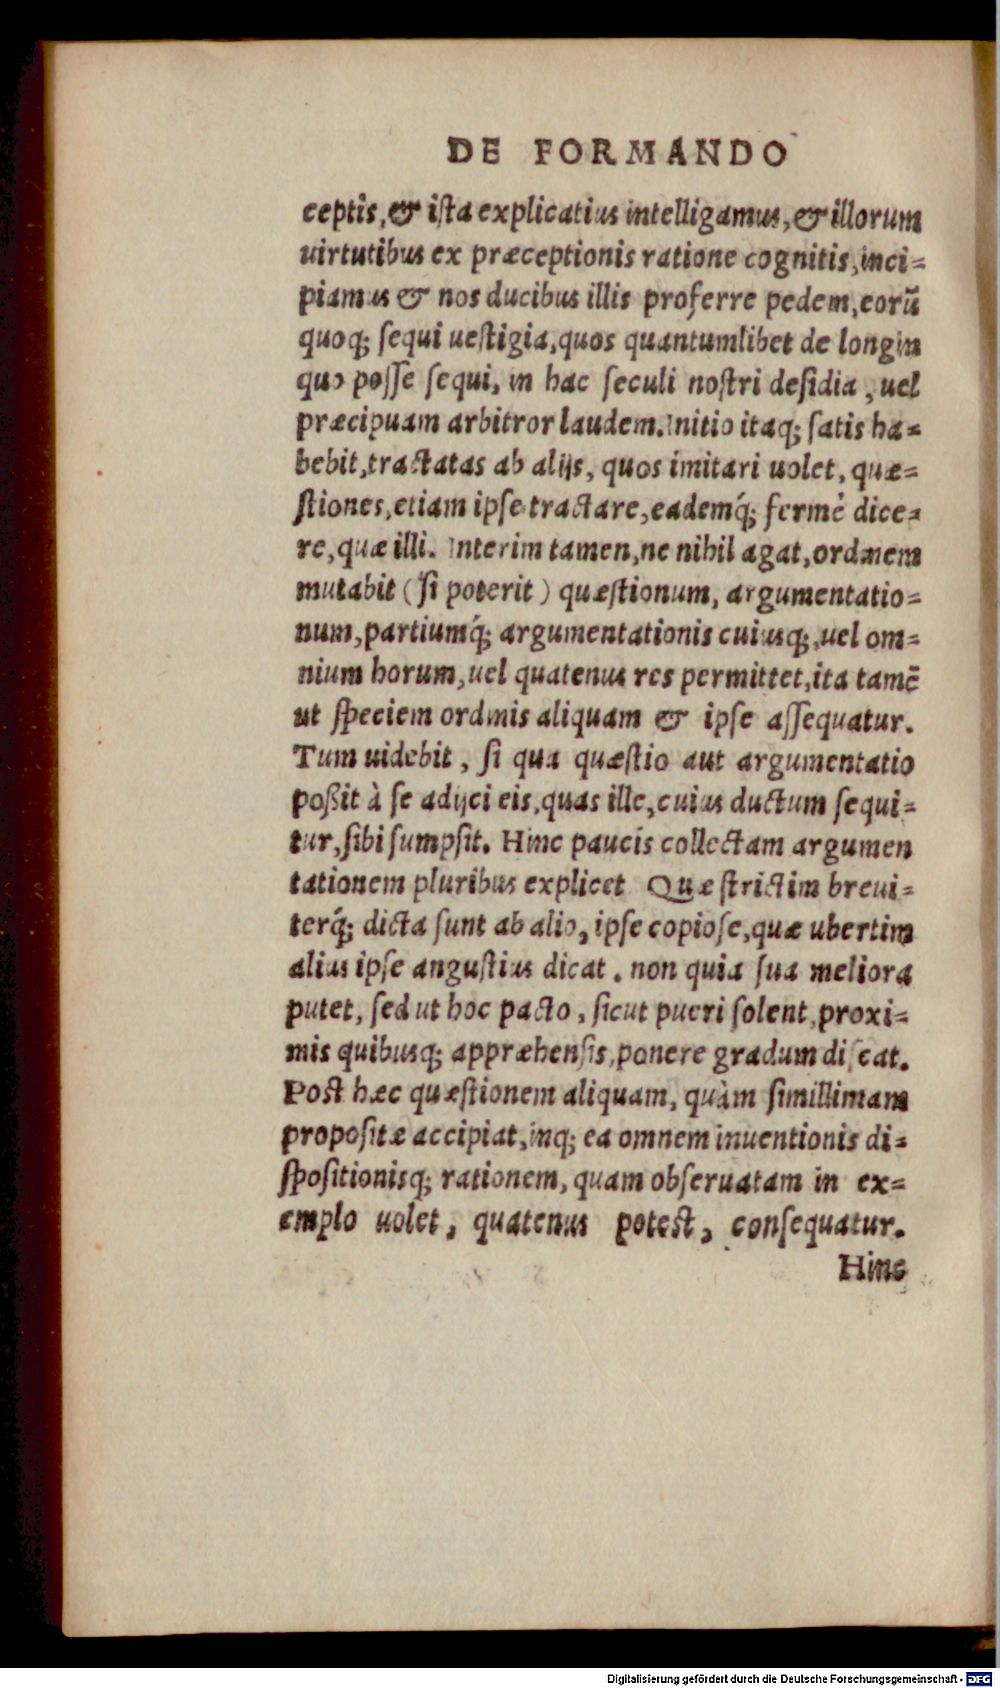 DE FORMANDO
ceptis, & ista explicatius intelligamus, & illorum
uirtutibus ex præceptionis ratione cognitis, inci=
piamus & nos ducibus illis proferre pedem, eorũ
quoq; sequi uestigia, quos quantumlibet de longin
quo posse sequi, in hac seculi nostri desidia, uel
præcipuam arbitror laudem. Initio itaq; satis ha=
bebit, tractatas ab alijs, quos imitari uolet, quæ=
stiones, etiam ipse tractare, eademq́; fermè dice=
re, quæ illi. Interim tamen, ne nihil agat, ordinem
mutabit (si poterit) quæstionum, argumentatio=
num, partiumq́; argumentationis cuiusq;, uel om=
nium horum, uel quatenus res permittet, ita tamẽ
ut speciem ordinis aliquam & ipse assequatur.
Tum uidebit, si qua quæstio aut argumentatio
poßit à se adijci eis, quas ille, cuius ductum sequi=
tur, sibi sumpsit. Hinc paucis collectam argumen
tationem pluribus explicet Quæ strictim breui=
terq́; dicta sunt ab alio, ipse copiose, quæ ubertim
alius ipse angustius dicat. non quia sua meliora
putet, sed ut hoc pacto, sicut pueri solent, proxi=
mis quibusq; appræhensis, ponere gradum discat.
Post hæc quæstionem aliquam, quàm simillimam
propositæ accipiat, inq; ea omnem inuentionis di=
spositionisq; rationem, quam obseruatam in ex=
emplo uolet, quatenus potest, consequatur.
Hinc
Digitalisierung gefördert durch die Deutsche Forschungsgemeinschaft - DFG